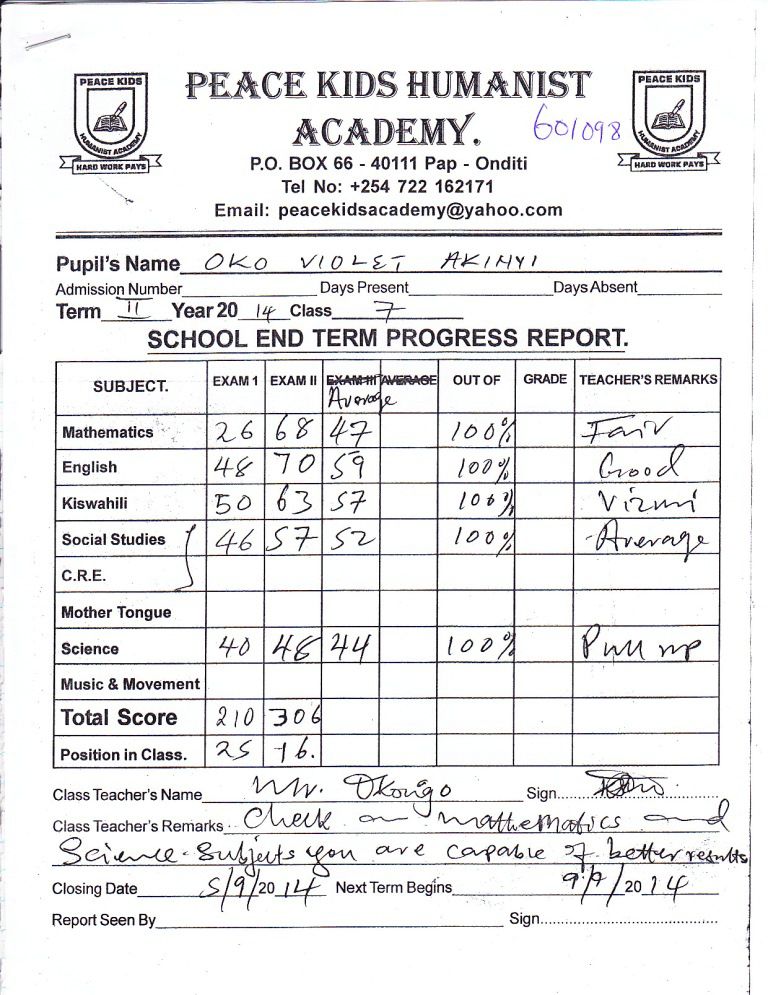 PEACE KIDS
HUMANIST ACADEMY
HARD WORK PAYS
PEACE KIDS HUMANIST
ACADEMY.
601098
PEACE KIDS
HUMANIST ACADEMY
HARD WORK PAYS
P.O. BOX 66 - 40111 Pap - Onditi
Tel No: +254 722 162171
Email: peacekidsacademy@yahoo.com
Pupil's Name OKO VIOLET AKINYI
Admission Number Days Present Days Absent
Term II Year 20 14 Class 7
SCHOOL END TERM PROGRESS REPORT.
SUBJECT. EXAM 1 EXAM II EXAM III AVERAGE OUT OF GRADE TEACHER'S REMARKS
Average
Mathematics 26 68 47 100% Fair
English 48 70 59 100% Good
Kiswahili 50 63 57 100% Vizuri
Social Studies 46 57 52 100% Average
C.R.E.
Mother Tongue
Science 40 48 44 100% Pull up
Music & Movement
Total Score 210 306
Position in Class. 25 16.
Class Teacher's Name Mr. Okongo Sign
Class Teacher's Remarks Check on mathematics and
Science subjects you are capable of better results
Closing Date 5/9/2014 Next Term Begins 9/9/2014
Report Seen By Sign